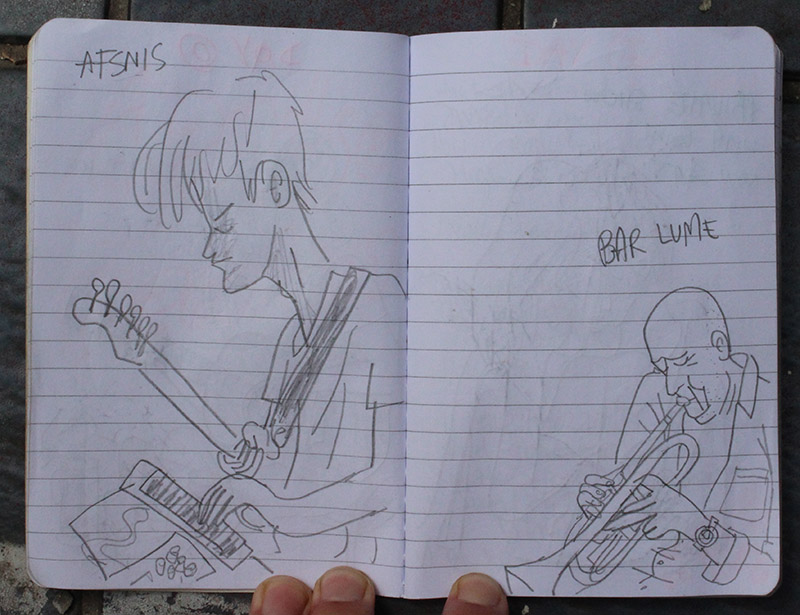 AFSNIS
BAR LUME